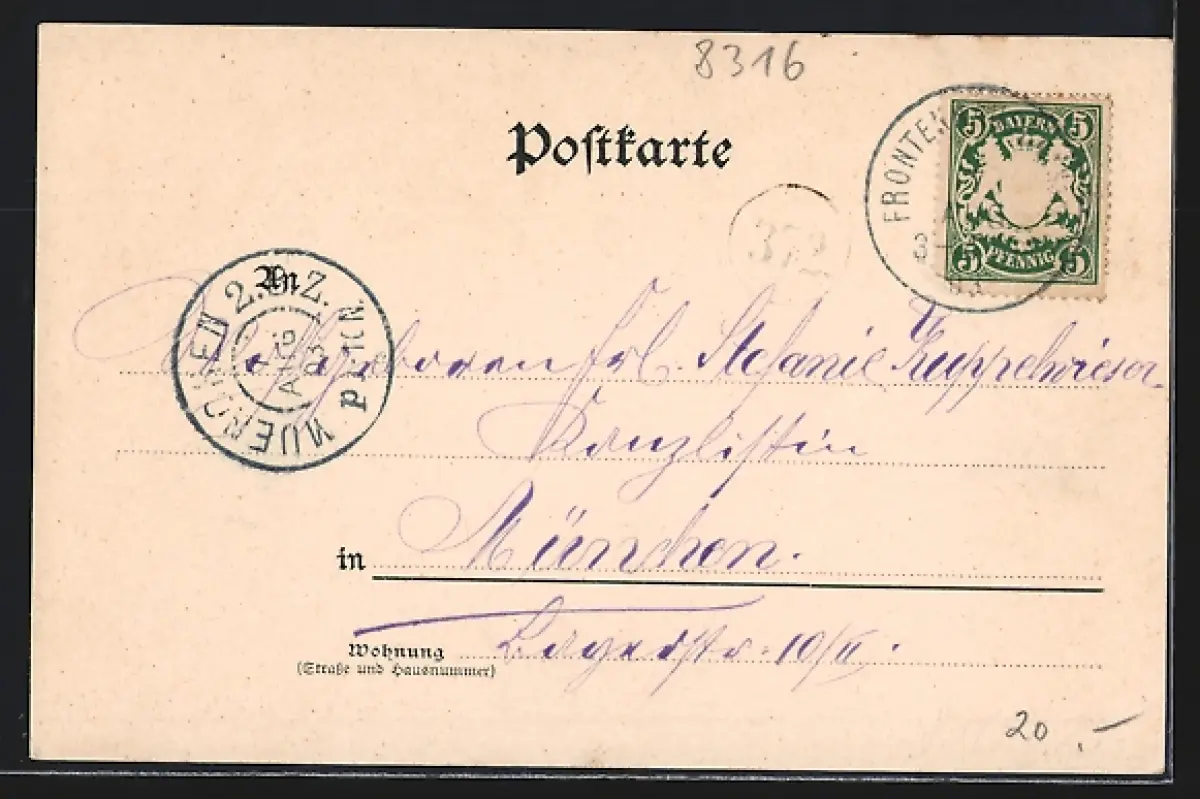 8316
Postkarte
FRONTEN
3-
BAYERN
5 5
PFENNIG
5 5
372
An
MUENCHEN 2.B.Z.
AUG
03
Hochgeboren Frl. Stefanie Kuppelwieser
Kanzlistin
in München.
Wohnung 10/II.
(Straße und Hausnummer)
20.-